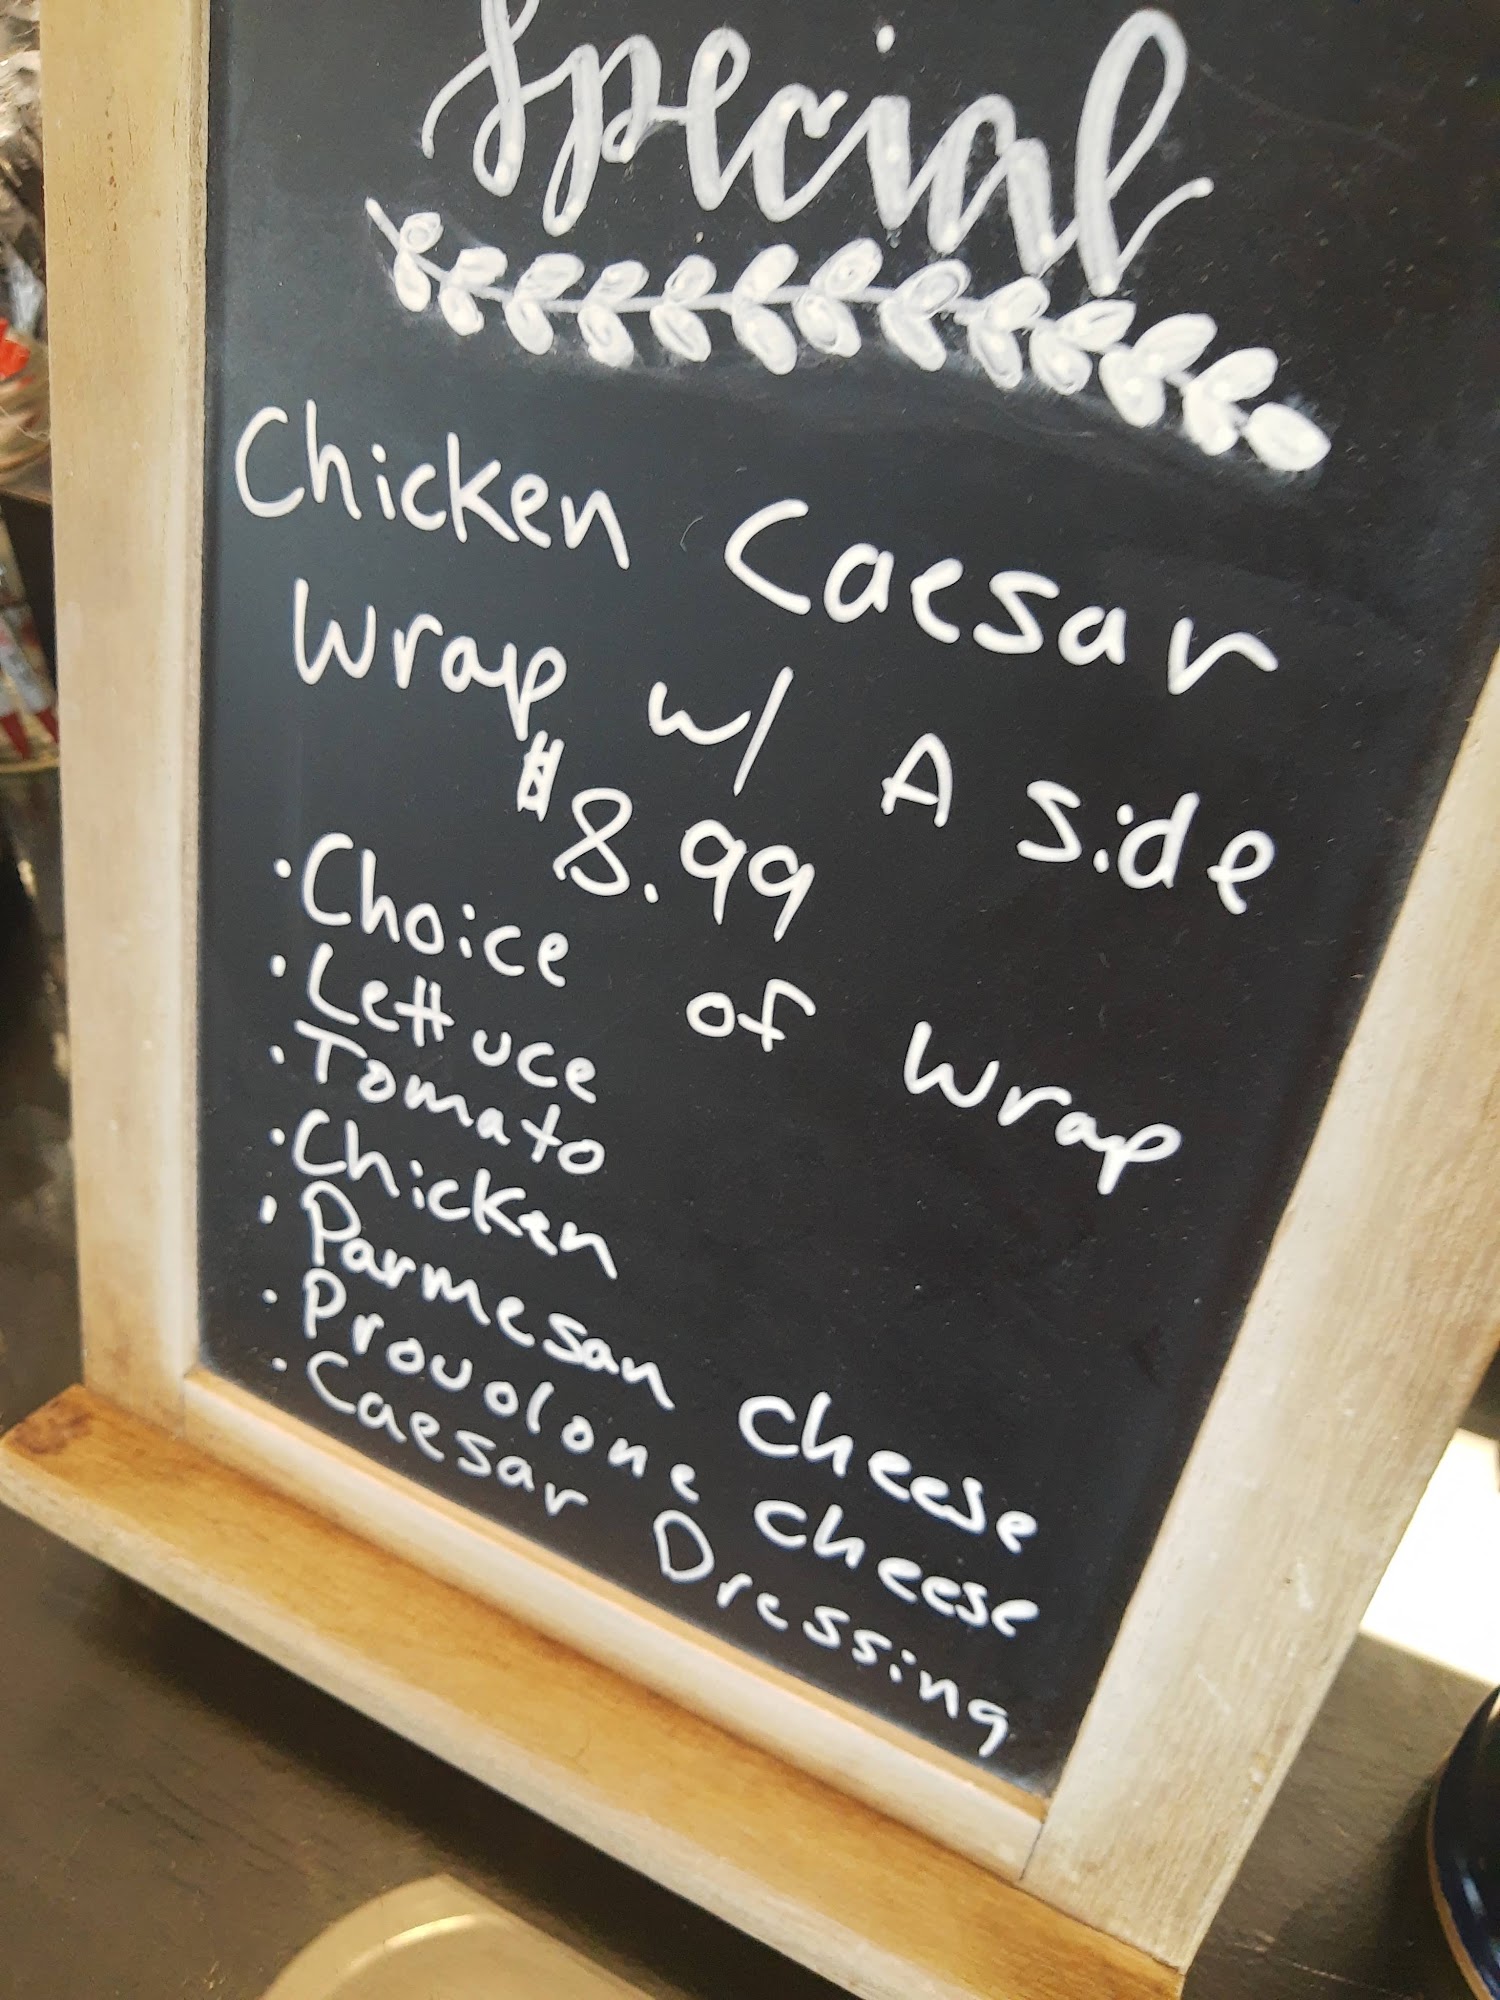 Special
Chicken Caesar
Wrap w/ A side
$8.99
· Choice of Wrap
· Lettuce
· Tomato
· Chicken
· Parmesan cheese
· Provolone cheese
· Caesar Dressing